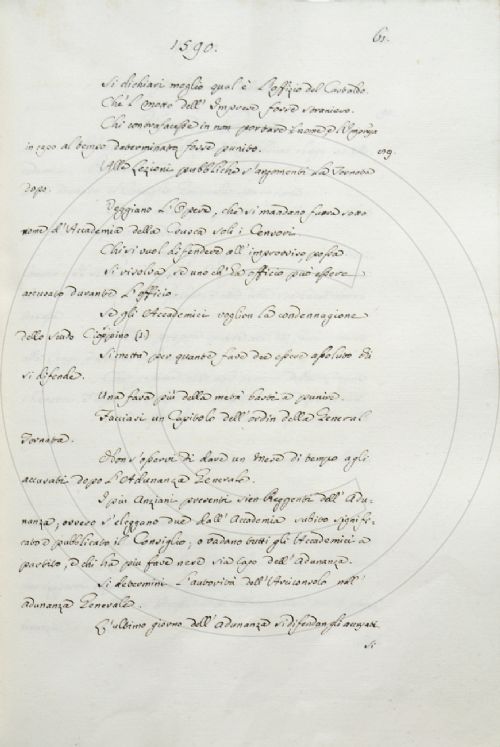 1590.
61.
Si dichiari meglio qual è l'offizio del Castaldo.
Che 'l motto dell' Imprese fosse straniero.
Chi contrafacesse in non portare il nome e l'Impresa
in capo al tempo determinato fosse punito.
Alle Lezioni pubbliche s'argomenti la Tornata
dopo.
Veggiano l'Opere, che si mandano fuora sotto
nome d'Accademia della Crusca soli i Censori.
Chi si vuol difendere all' improvviso, possa
Si risolva, se uno ch' ha officio può essere
accusato durante l'officio.
Se gli Accademici voglion la condennagione
dello Scudo Cioppino (1)
Si metta per quante fave dee essere assoluto chi
si difende.
Una fava più della metà basti a punire.
Facciasi un Capitolo dell' ordin della General
Tornata.
Non s'osservi di dare un mese di tempo agli
accusati dopo l'Adunanza Generale.
I più Anziani presenti sien Reggenti dell' Adu-
nanza, ovvero s'eleggano due dall' Accademia subito signifi-
cato e pubblicato il Consiglio, o vadano tutti gli Accademici a
partito, e chi ha più fave nere sia Capo dell' Adunanza.
Si determini l'autorità dell' Arciconsolo nell'
Adunanza Generale.
L'ultimo giorno dell' Adunanza si difendan gli accusati
si